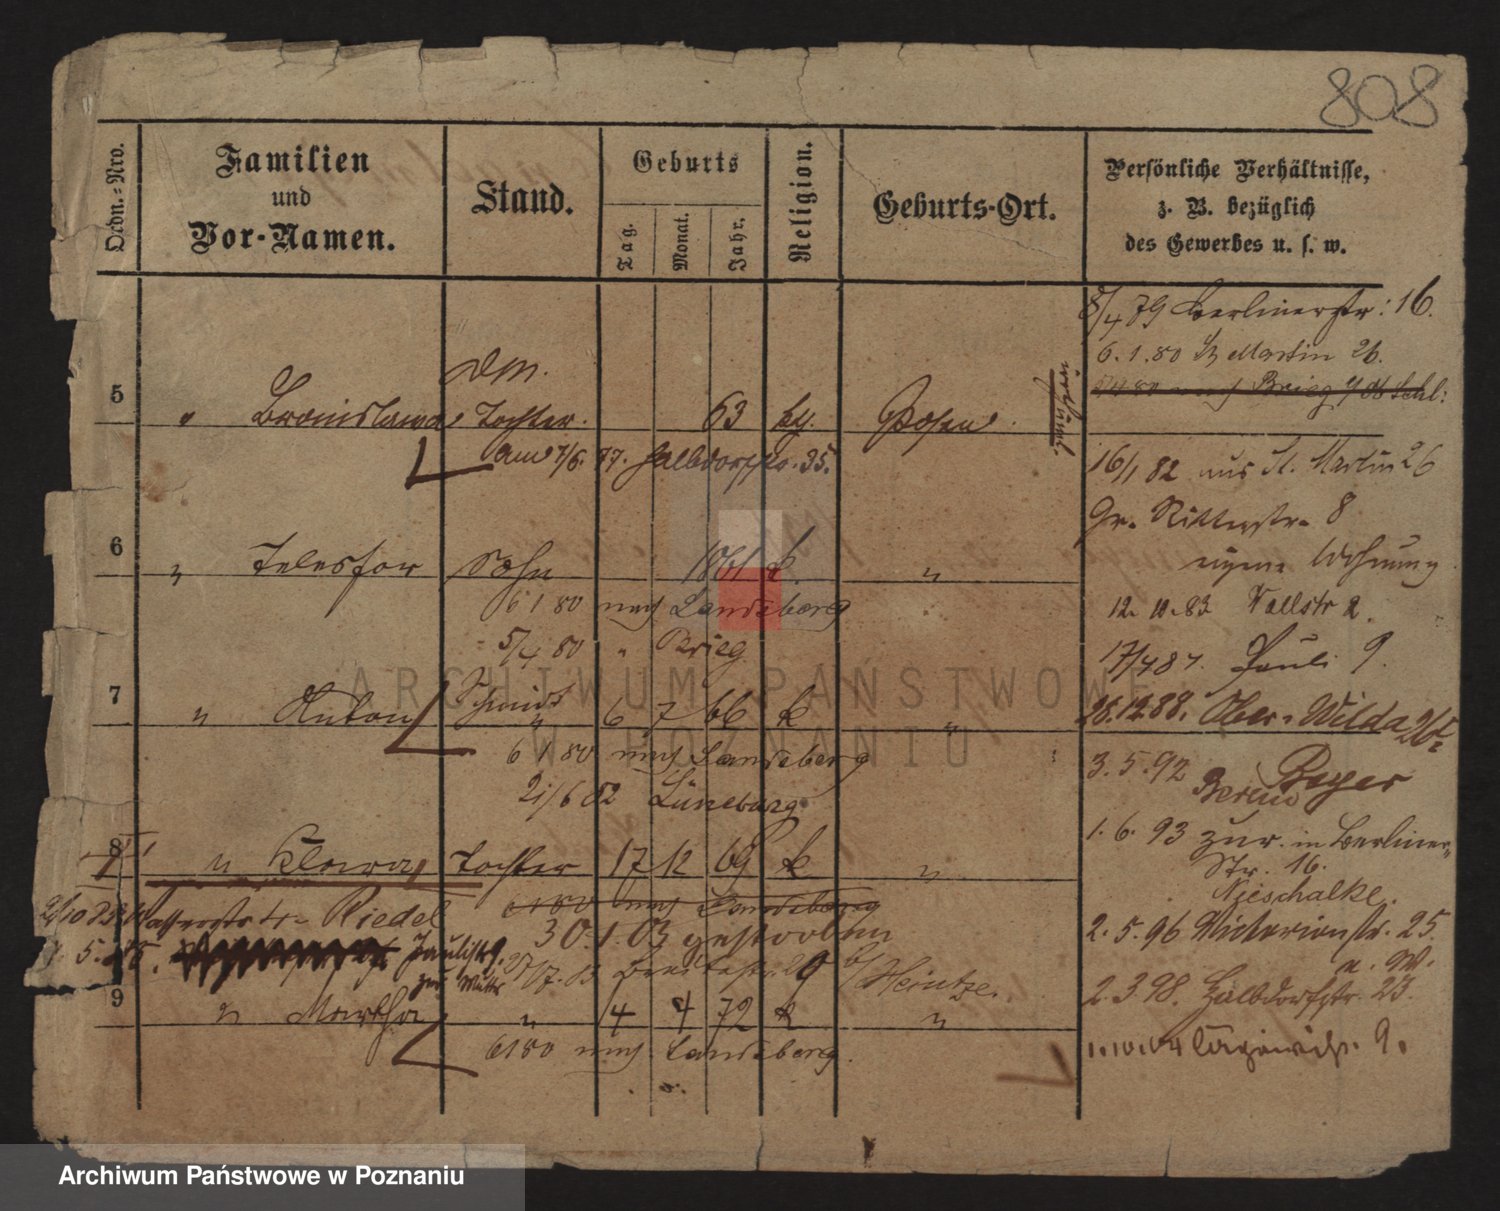 808
Ordn.-Nro.
Familien
und
Vor-Namen.
Stand.
Geburts
Tag.
Monat.
Jahr.
Religion.
Geburts-Ort.
Persönliche Verhältnisse,
z. B. bezüglich
des Gewerbes u. s. w.
8/4 79 Berlinerstr: 16.
6.1.80 St Martin 26.
5 " Bronislawa Tochter. 63 Posen
am 7/6. 77. Halbdorfstr. 35.
16/1 82 aus St. Martin 26
Gr. Ritterstr. 8
eigene Wohnung
6 " Telesfor Sohn 1861 k. "
6 1 80 nach Landsberg
12. 11.83 Wallstr 2.
5/4 80 " Brieg
17/4 87. Pauli 9.
7 " Anton Schmidt " 6 7 66 k "
28.12.88. Ober-Wilda
6 1 80 nach Landsberg
3.5.92 Beyer
21/6 82 Lüneburg
1.6.93 zur. in Berliner-
Str. 16.
8 " Klara Tochter 17 12 69 k "
Nieschalke.
6 1 80 nach Landsberg
Wasserstr 4. Riedel
30.1.03 gestorben
2.5.96 Victoriastr. 25.
Paulistr 9.
zur Mutter
Breitestr. 29 b/ Heintze.
2.3.98. Halbdorfstr. 23.
9 " Martha " 4 4 72 k "
6 1 80 nach Landsberg.
1.10.04 9.
ARCHIWUM PAŃSTWOWE
W POZNANIU
Archiwum Państwowe w Poznaniu